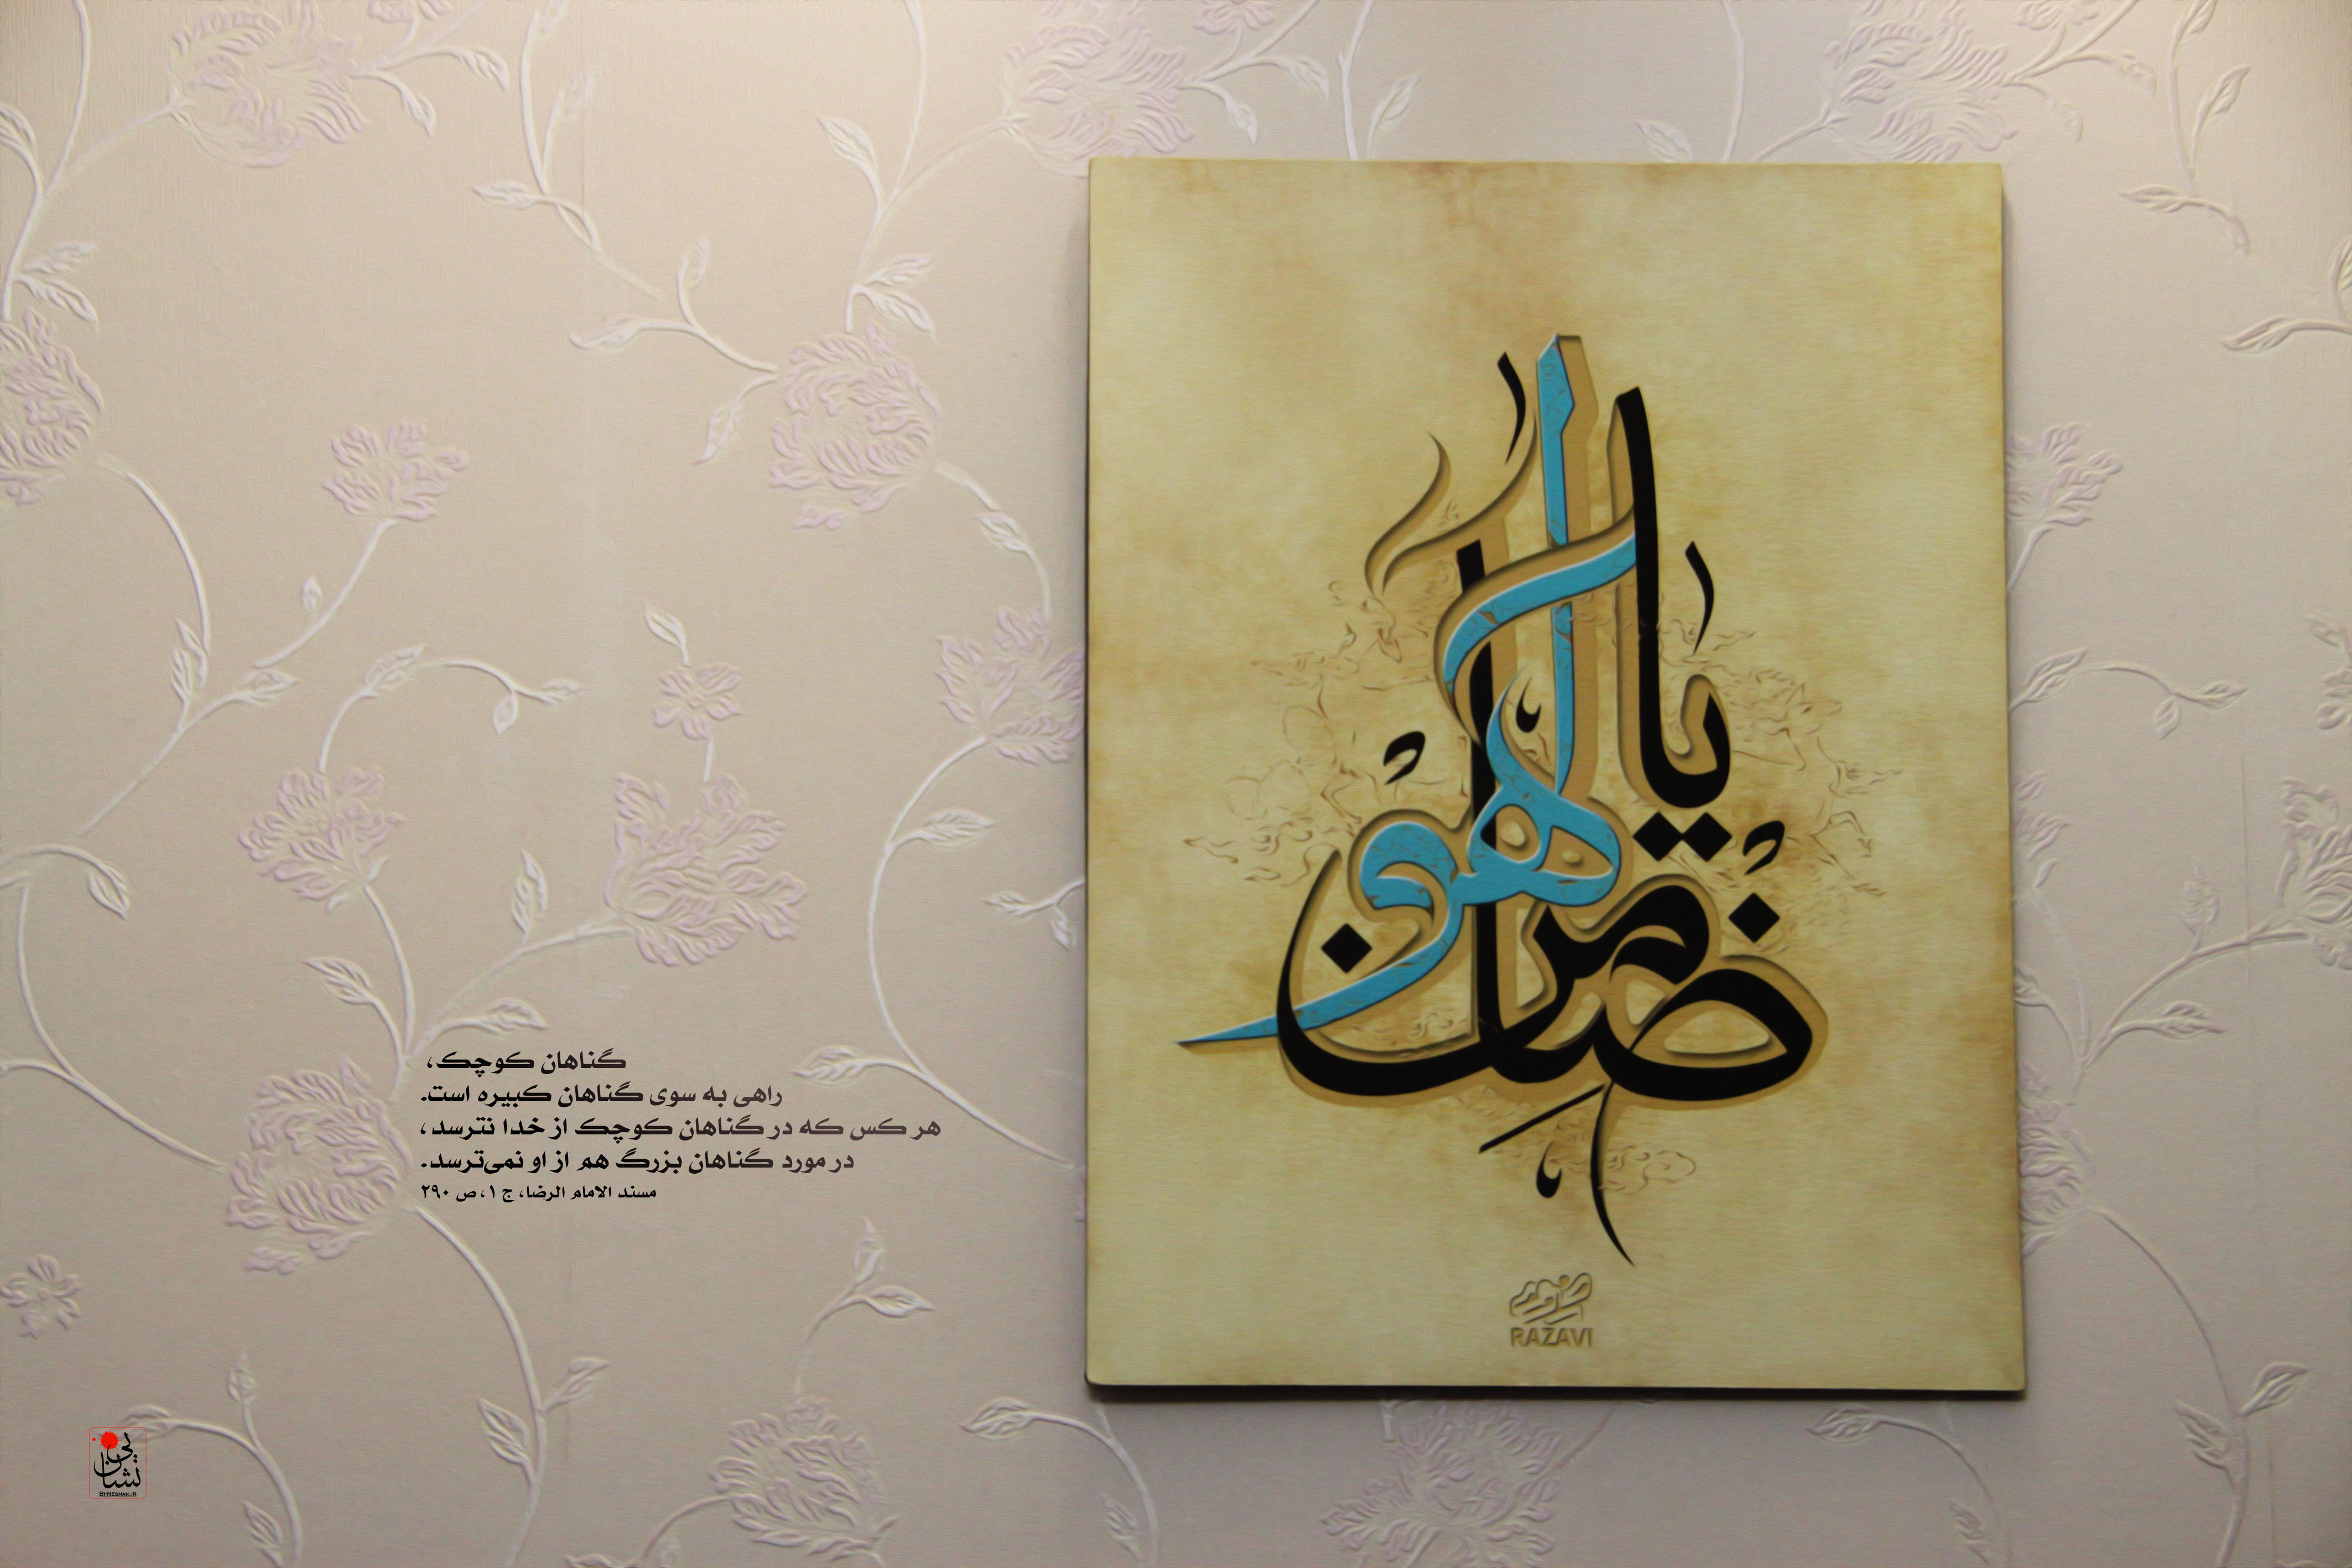 یا ضامن آهو
RAZAVI
گناهان کوچک،
راهی به سوی گناهان کبیره است.
هر کس که در گناهان کوچک از خدا نترسد،
در مورد گناهان بزرگ هم از او نمی‌ترسد.
مسند الامام الرضا، ج ۱، ص ۲۹۰
بی نشان
Bi-Neshan.ir